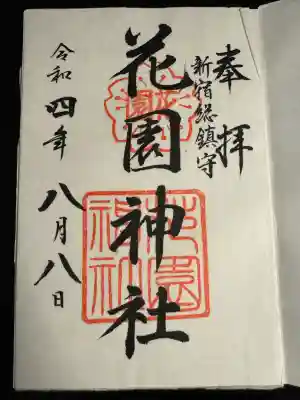 奉拝
新宿総鎮守
花園神社
令和四年
八月八日
花園
花園神社